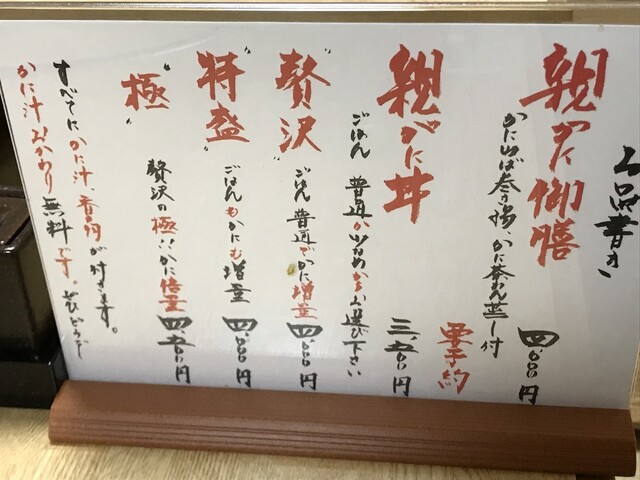 お品書き
親がに御膳
四、〇〇〇円
かに茶わん蒸し付
要予約
親がに丼
三、五〇〇円
ごはん 普通か少なめかお選び下さい
"贅沢"
ごはん 普通でかに増量
四、〇〇〇円
"特盛"
ごはんもかにも増量
四、〇〇〇円
"極"
贅沢の極!!かに倍量
四、五〇〇円
すべてにかに汁、香物が付きます。
かに汁おかわり無料です。ぜひどうぞ